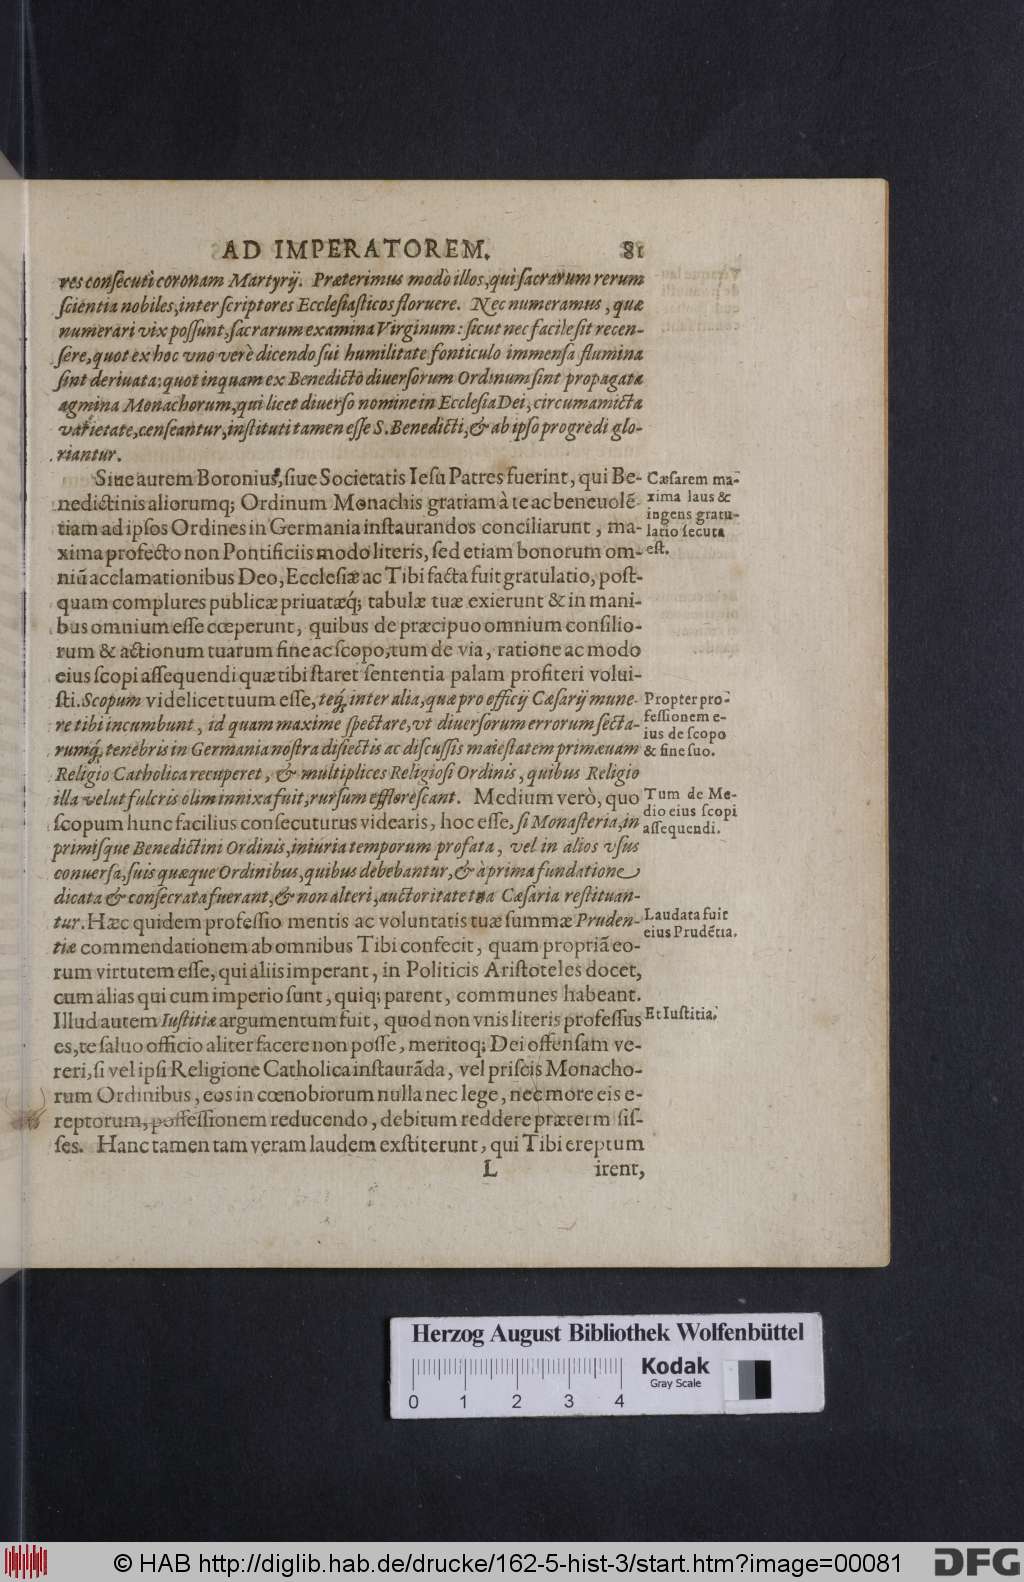 AD IMPERATOREM. 81
res consecuti coronam Martyrij. Præterimus modò illos, qui sacrarum rerum
scientia nobiles, inter scriptores Ecclesiasticos floruere. Nec numeramus, quæ
numerari vix possunt, sacrarum examina Virginum: sicut nec facile sit recen-
sere, quot ex hoc vno verè dicendo sui humilitate fonticulo immensa flumina
sint deriuata: quot inquam ex Benedicto diuersorum Ordinum sint propagata
agmina Monachorum, qui licet diuerso nomine in Ecclesia Dei, circumamicta
varietate, censeantur, instituti tamen esse S. Benedicti, & ab ipso progredi glo-
riantur.
Siue autem Boronius, siue Societatis Iesu Patres fuerint, qui Be-
nedictinis aliorumq; Ordinum Monachis gratiam à te ac beneuolē-
tiam ad ipsos Ordines in Germania instaurandos conciliarunt, ma-
xima profecto non Pontificiis modo literis, sed etiam bonorum om-
niū acclamationibus Deo, Ecclesiæ ac Tibi facta fuit gratulatio, post-
quam complures publicæ priuatæq́; tabulæ tuæ exierunt & in mani-
bus omnium esse cœperunt, quibus de præcipuo omnium consilio-
rum & actionum tuarum fine ac scopo, tum de via, ratione ac modo
eius scopi assequendi quæ tibi staret sententia palam profiteri volui-
sti. Scopum videlicet tuum esse, teq́; inter alia, quæ pro efficij Cæsarij mune-
re tibi incumbunt, id quam maxime spectare, vt diuersorum errorum secta-
rumq́; tenebris in Germania nostra disiectis ac discussis maiestatem primæuam
Religio Catholica recuperet, & multiplices Religiosi Ordinis, quibus Religio
illa velut fulcris olim innixa fuit, rursum efflorescant. Medium verò, quo
scopum hunc facilius consecuturus videaris, hoc esse, si Monasteria, in
primisque Benedictini Ordinis, iniuria temporum profata, vel in alios vsus
conuersa, suis quæque Ordinibus, quibus debebantur, & à prima fundatione
dicata & consecrata fuerant, & non alteri, auctoritate tua Cæsaria restituan-
tur. Hæc quidem professio mentis ac voluntatis tuæ summæ Pruden-
tiæ commendationem ab omnibus Tibi confecit, quam propriā eo-
rum virtutem esse, qui aliis imperant, in Politicis Aristoteles docet,
cum alias qui cum imperio sunt, quiq; parent, communes habeant.
Illud autem Iustitiæ argumentum fuit, quod non vnis literis professus
es, te saluo officio aliter facere non posse, meritoq; Dei offensam ve-
reri, si vel ipsi Religione Catholica instaurāda, vel priscis Monacho-
rum Ordinibus, eos in cœnobiorum nulla nec lege, nec more eis e-
reptorum, possessionem reducendo, debitum reddere præterm sis-
ses. Hanc tamen tam veram laudem exstiterunt, qui Tibi ereptum
L irent,
Cæsarem ma-
xima laus &
ingens gratu-
latio secuta
est.
Propter pro-
fessionem e-
ius de scopo
& fine suo.
Tum de Me-
dio eius scopi
assequendi.
Laudata fuit
eius Prudētia.
Et Iustitia.
Herzog August Bibliothek Wolfenbüttel
Kodak
Gray Scale
0 1 2 3 4
© HAB http://diglib.hab.de/drucke/162-5-hist-3/start.htm?image=00081
DFG